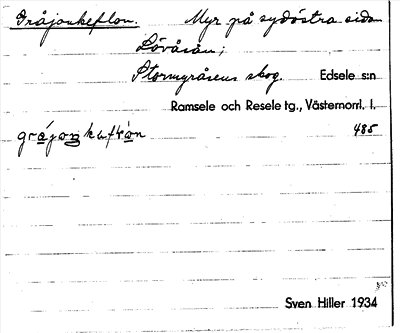 Gråjonkeflon. Myr på sydöstra sidan
Lövåsån;
Stormyråsens skog. Edsele s:n
Ramsele och Resele tg., Västernorrl. l.
485
Sven Hiller 1934